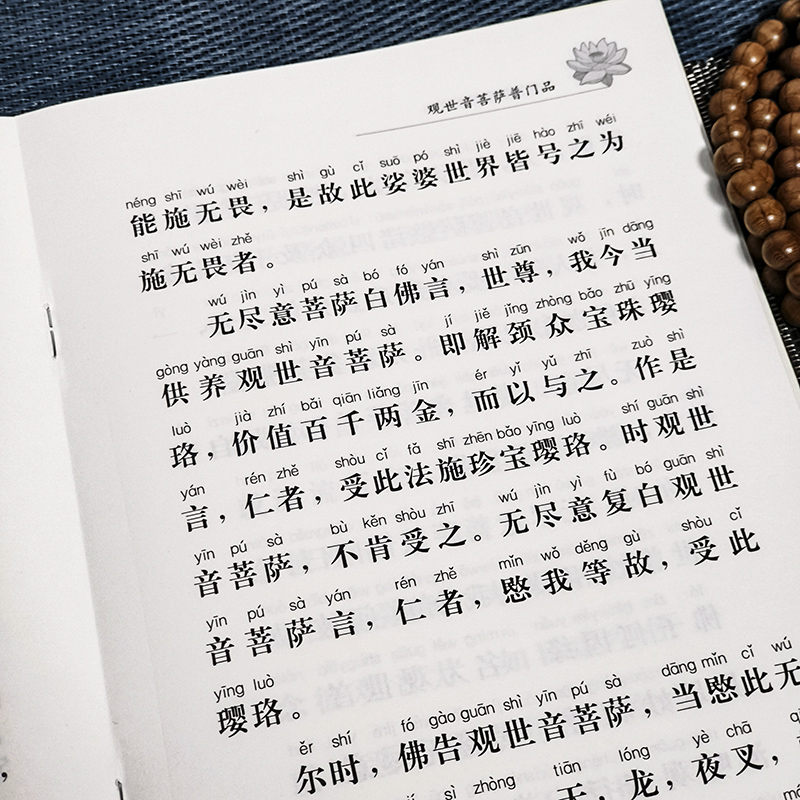 观世音菩萨普门品
néng shī wú wèi shì gù cǐ suō pó shì jiè jiē hào zhī wéi
能施无畏，是故此娑婆世界皆号之为
shī wú wèi zhě
施无畏者。
wú jìn yì pú sà bó fó yán shì zūn wǒ jīn dāng
无尽意菩萨白佛言，世尊，我今当
gòng yàng guān shì yīn pú sà jí jiě jǐng zhòng bǎo zhū yīng
供养观世音菩萨。即解颈众宝珠璎
luò jià zhí bǎi qiān liǎng jīn ér yǐ yǔ zhī zuò shì
珞，价值百千两金，而以与之。作是
yán rén zhě shòu cǐ fǎ shī zhēn bǎo yīng luò shí guān shì
言，仁者，受此法施珍宝璎珞。时观世
yīn pú sà bù kěn shòu zhī wú jìn yì fù bó guān shì
音菩萨，不肯受之。无尽意复白观世
yīn pú sà yán rén zhě mǐn wǒ děng gù shòu cǐ
音菩萨言，仁者，愍我等故，受此
yīng luò
璎珞。
ěr shí fó gào guān shì yīn pú sà dāng mǐn cǐ wú
尔时，佛告观世音菩萨，当愍此无
jí sì zhòng tiān lóng yè chā
天，龙，夜叉，